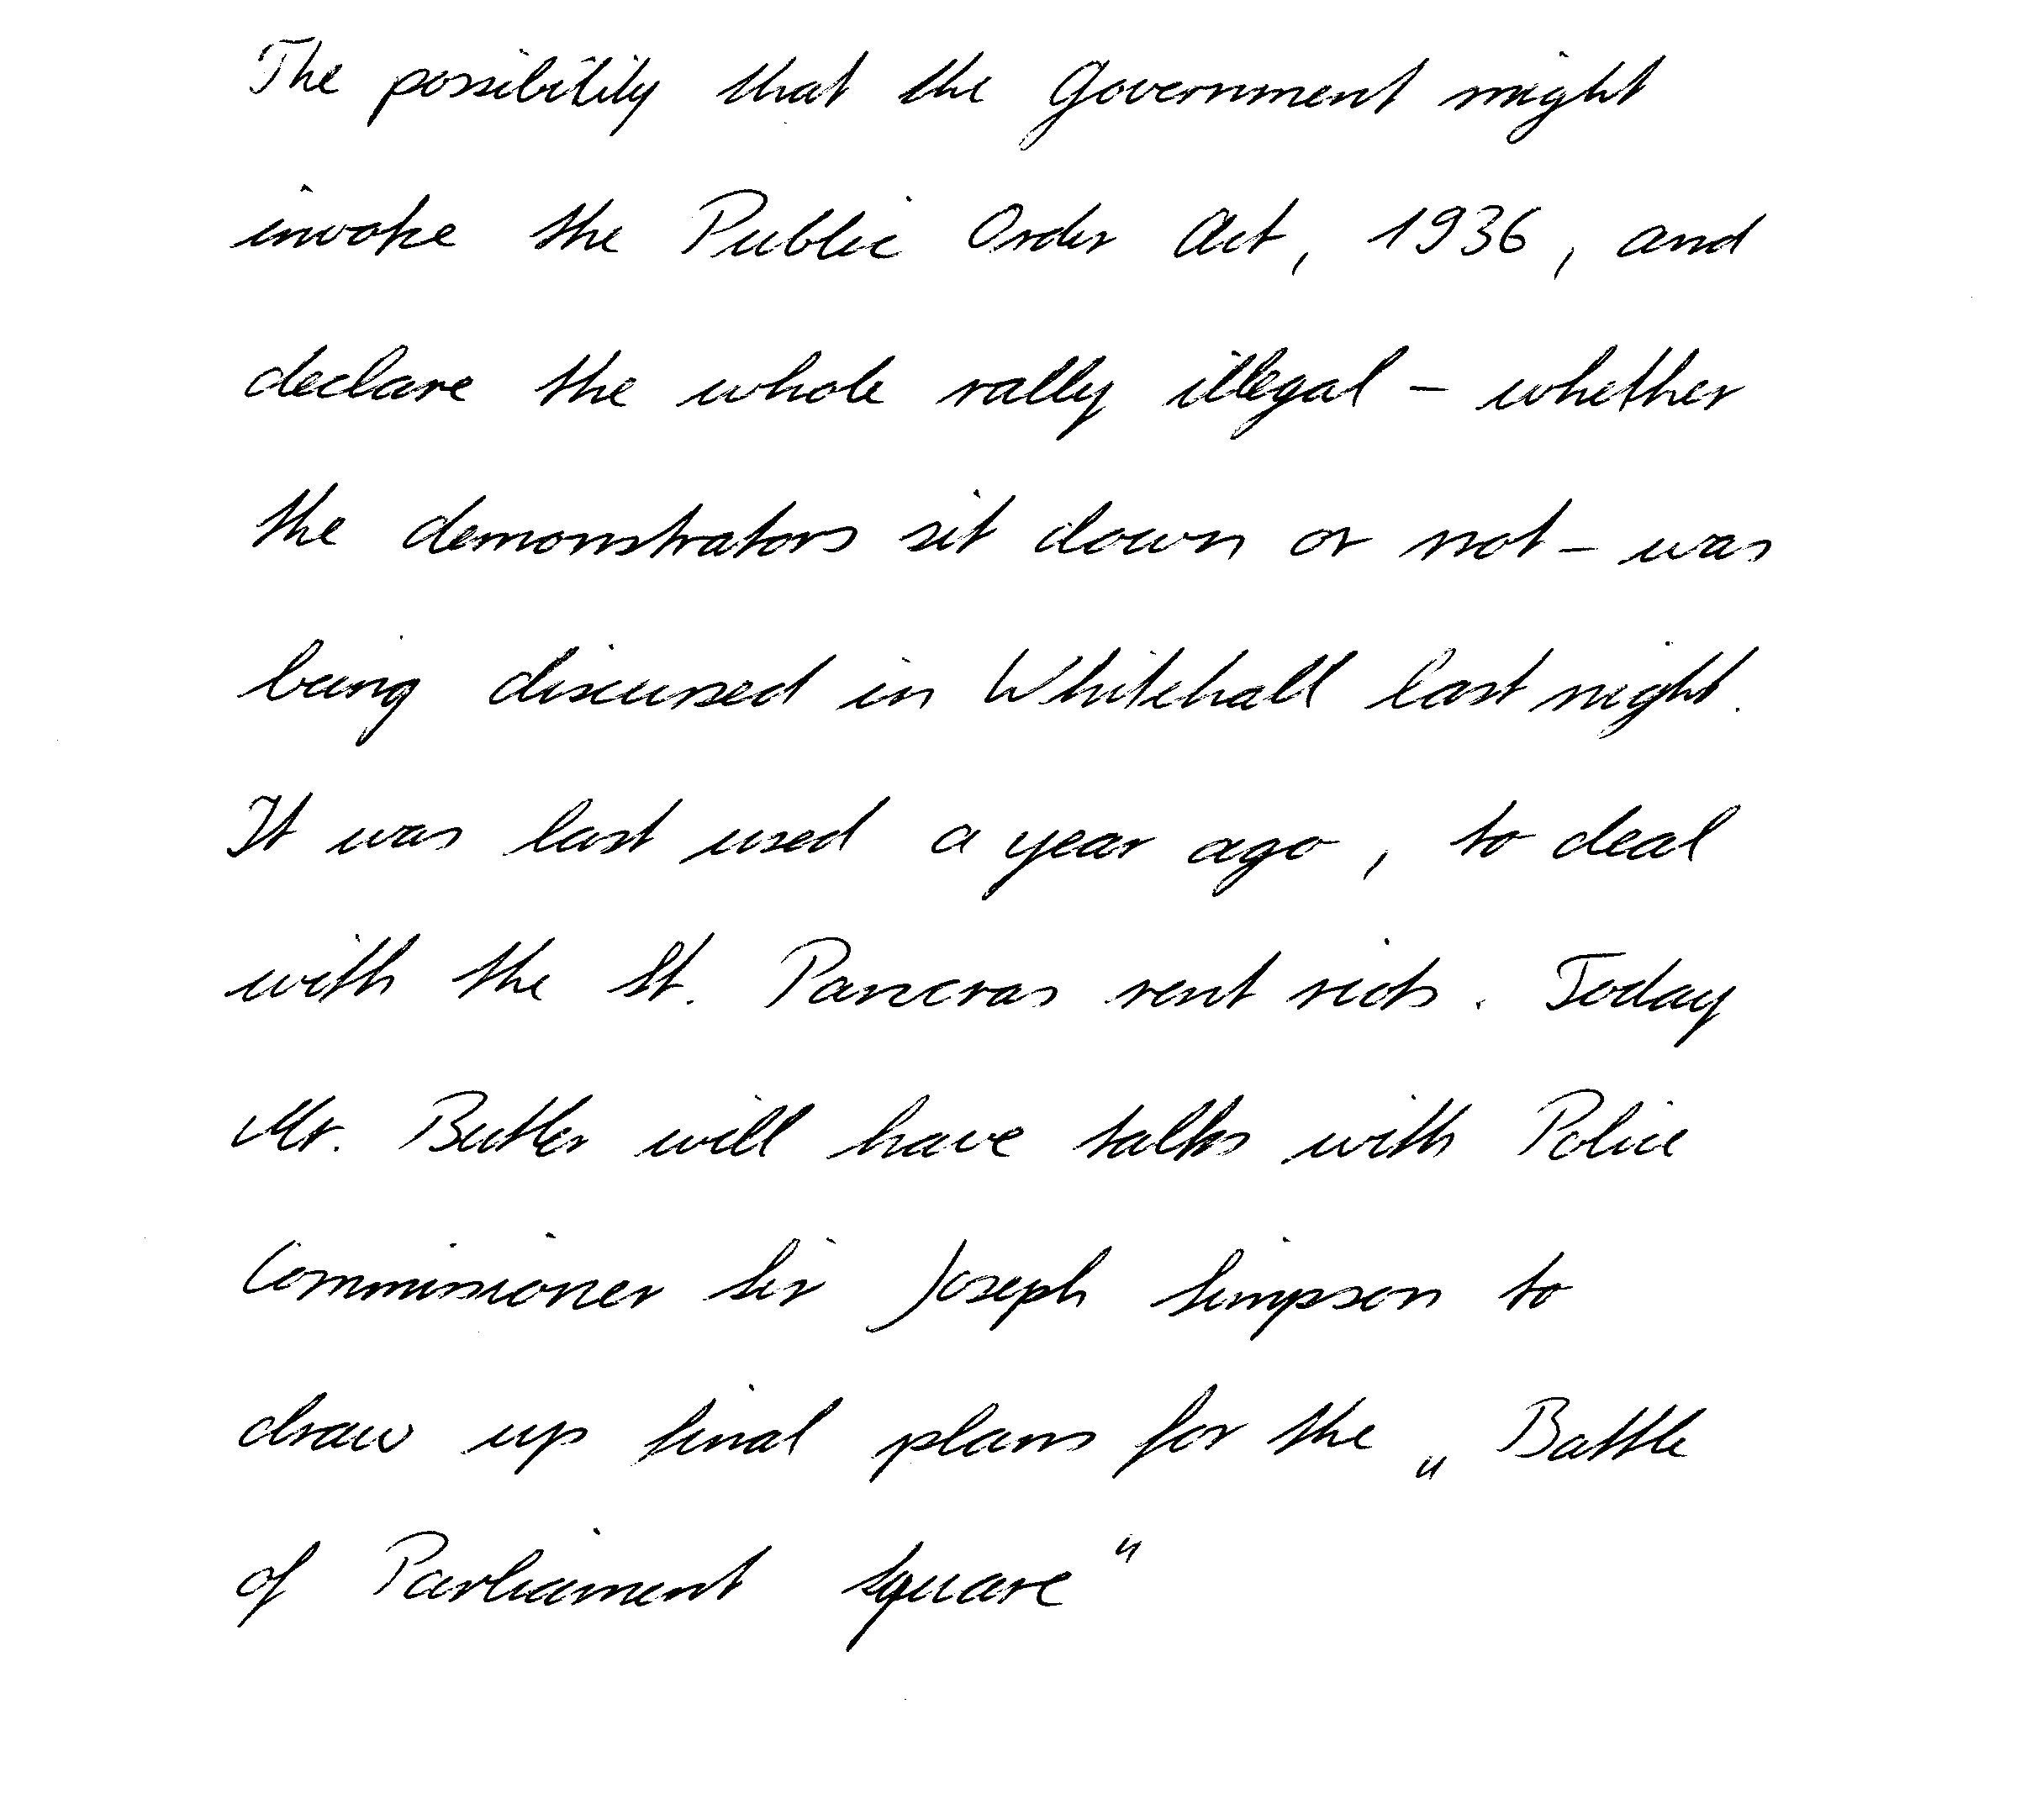 The possibility that the Government might
invoke the Public Order Act, 1936, and
declare the whole rally illegal - whether
the demonstrators sit down or not - was
being discussed in Whitehall last night.
It was last used a year ago, to deal
with the St. Pancras rent riots. Today
Mr. Butler will have talks with Police
Commissioner Sir Joseph Simpson to
draw up final plans for the „Battle
of Parliament Square"